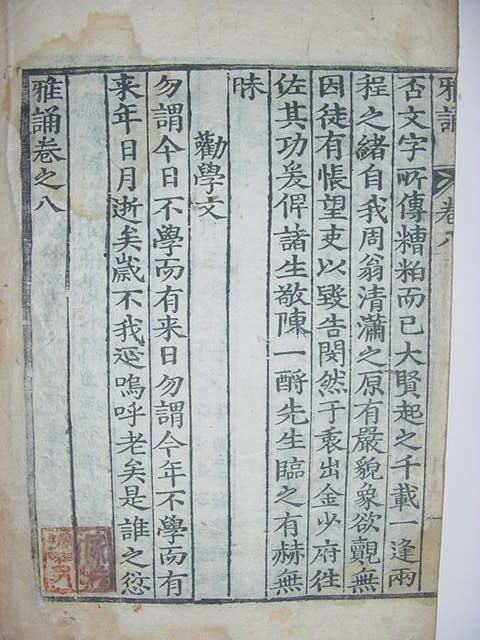 雅誦 卷八
否文字所傳糟粕而已大賢起之千載一逢兩
程之緖自我周翁淸瀟之原有嚴貌象欲覿無
因徒有悵望吏以毀告閔然于衷出金少府往
佐其功爰俾諸生敬陳一酹先生臨之有赫無
昧
勸學文
勿謂今日不學而有来日勿謂今年不學而有
来年日月逝矣歲不我延嗚呼老矣是誰之愆
雅誦卷之八